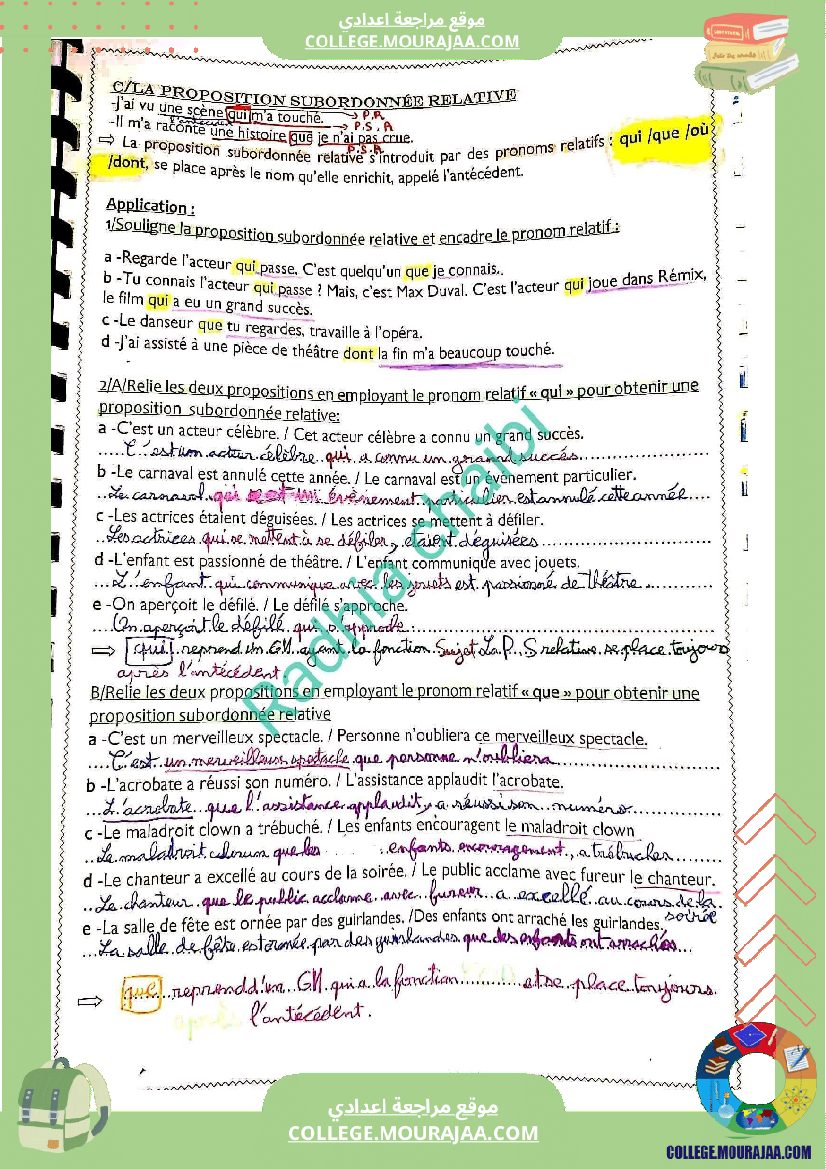 موقع مراجعة اعدادي
COLLEGE.MOURAJAA.COM
C/LA PROPOSITION SUBORDONNÉE RELATIVE
-J'ai vu une scène qui m'a touché. → P.R
→ P.S.R
-Il m'a raconté une histoire que je n'ai pas crue.
P.S.R
⇒ La proposition subordonnée relative s'introduit par des pronoms relatifs : qui /que /où
/dont, se place après le nom qu'elle enrichit, appelé l'antécédent.
Application :
1/Souligne la proposition subordonnée relative et encadre le pronom relatif :
a -Regarde l'acteur qui passe. C'est quelqu'un que je connais..
b -Tu connais l'acteur qui passe ? Mais, c'est Max Duval. C'est l'acteur qui joue dans Rémix,
le film qui a eu un grand succès.
c -Le danseur que tu regardes, travaille à l'opéra.
d -J'ai assisté à une pièce de théâtre dont la fin m'a beaucoup touché.
2/A/Relie les deux propositions en employant le pronom relatif « qui » pour obtenir une
proposition subordonnée relative:
a -C'est un acteur célèbre. / Cet acteur célèbre a connu un grand succès.
C'est un acteur célèbre qui a connu un grand succès
b -Le carnaval est annulé cette année. / Le carnaval est un évènement particulier.
Le carnaval qui est un évènement particulier est annulé cette année
c -Les actrices étaient déguisées. / Les actrices se mettent à défiler.
Les actrices qui se mettent à se défiler, etaient déguisées
d -L'enfant est passionné de théâtre. / L'enfant communique avec jouets.
L'enfant qui communique avec les jouets est passionné de théâtre
e -On aperçoit le défilé. / Le défilé s'approche.
On aperçoit le défilé qui s'approche
⇒ qui reprend un GN ayant la fonction Sujet La P. S relative se place toujours
après l'antécédent.
B/Relie les deux propositions en employant le pronom relatif « que » pour obtenir une
proposition subordonnée relative
a -C'est un merveilleux spectacle. / Personne n'oubliera ce merveilleux spectacle.
C'est un merveilleux spectacle que personne n'oubliera
b -L'acrobate a réussi son numéro. / L'assistance applaudit l'acrobate.
L'acrobate que l'assistance applaudit, a réussi son numéro
c -Le maladroit clown a trébuché. / Les enfants encouragent le maladroit clown
Le maladroit clown que les enfants encouragement, a trébucher
d -Le chanteur a excellé au cours de la soirée. / Le public acclame avec fureur le chanteur.
Le chanteur que le public acclame avec fureur a excellé au cours de la
soirée
e -La salle de fête est ornée par des guirlandes. /Des enfants ont arraché les guirlandes.
La salle de fête est ornée par des guirlandes que des enfants ont arrachés
⇒ que reprend d'un GN qui a la fonction ......... et se place toujours
après l'antécédent.
Radhia chaibi
موقع مراجعة اعدادي
COLLEGE.MOURAJAA.COM
COLLEGE.MOURAJAA.COM